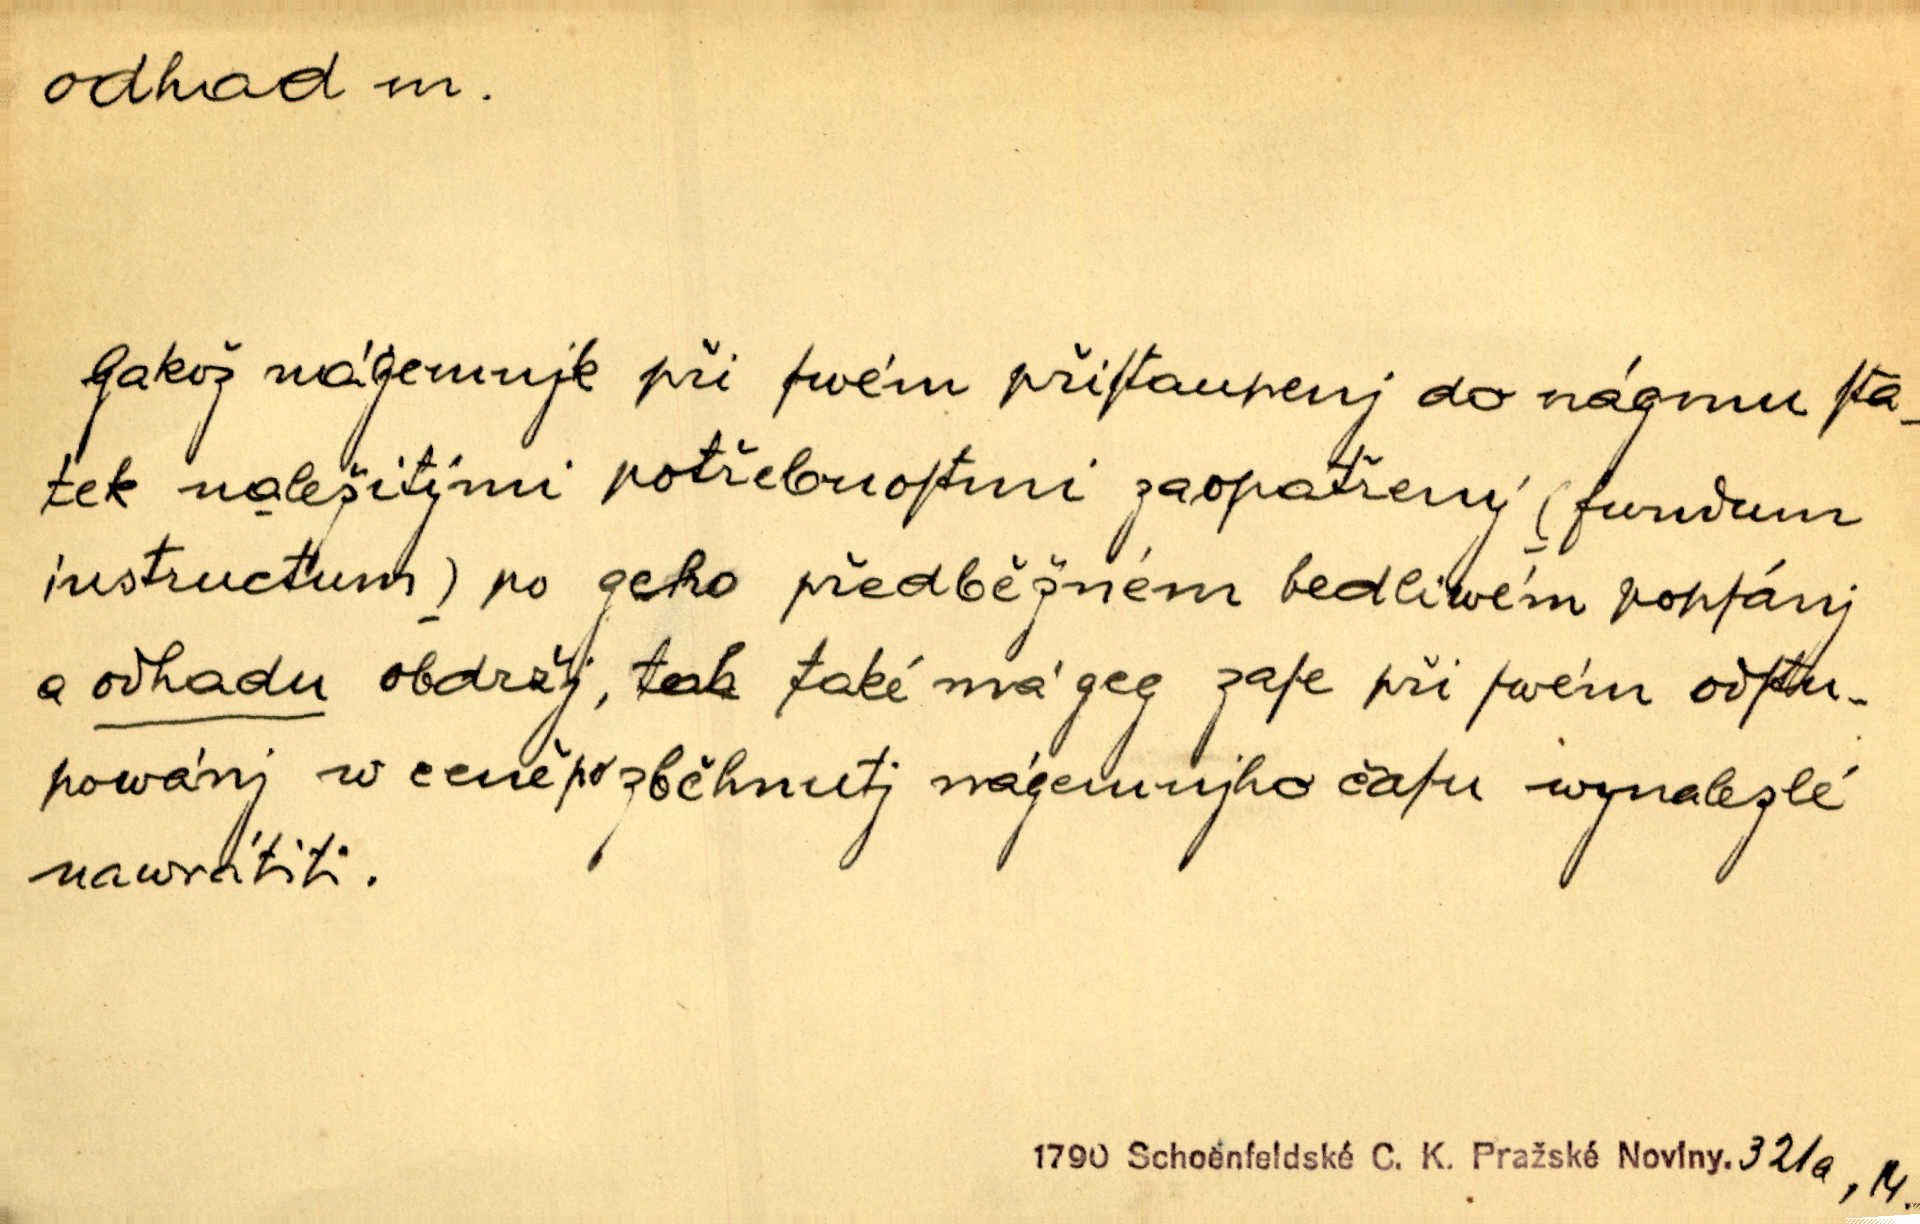 odhad m.
Gakož nágemnjk při ſwém přiſtaupenj do nágmu ſta-
tek náležitými potřebnoſtmi zaopatřený (fundum
instructum) po geho předběžném bedliwém popſánj
a odhadu obdržj, tak také má geg zaſe při ſwém odſtu-
powánj w ceně po zběhnutj nágemnjho čaſu wynalezlé
nawrátiti.
1790 Schoenfeldské C. K. Pražské Noviny. 321a, 14.